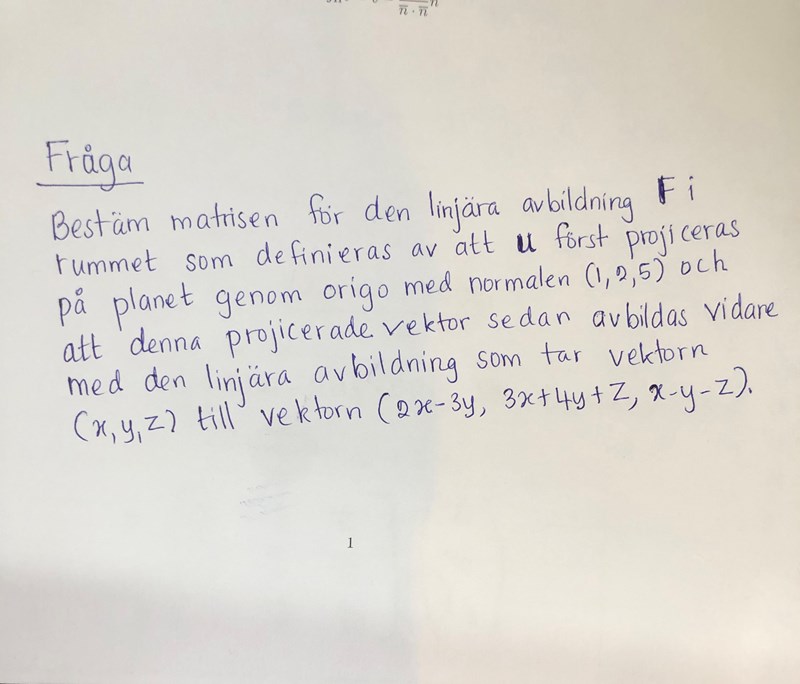 n̅ · n̅ n̅
Fråga
Bestäm matrisen för den linjära avbildning F i
rummet som definieras av att u först projiceras
på planet genom origo med normalen (1,2,5) och
att denna projicerade vektor sedan avbildas vidare
med den linjära avbildning som tar vektorn
(x,y,z) till vektorn (2x-3y, 3x+4y+z, x-y-z).
1